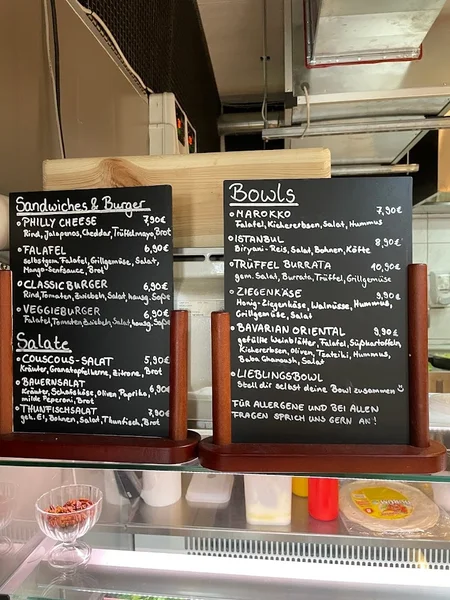 Sandwiches & Burger
PHILLY CHEESE 7,90€
Rind, Jalapenos, Cheddar, Trüffelmayo, Brot
FALAFEL 6,90€
selbstgem. Falafel, Grillgemüse, Salat,
Mango-Senfsauce, Brot
CLASSIC BURGER 6,90€
Rind, Tomaten, Zwiebeln, Salat, hausg. Soße
VEGGIEBURGER 6,90€
Falafel, Tomaten, Zwiebeln, Salat, hausg. Soße
Salate
COUSCOUS-SALAT 5,90€
Kräuter, Granatapfelkerne, Zitrone, Brot
BAUERNSALAT 6,90€
Kräuter, Schafskäse, Oliven, Paprika,
milde Peperoni, Brot
THUNFISCHSALAT 7,90€
gek. Ei, Bohnen, Salat, Thunfisch, Brot
Bowls
MAROKKO 7,90€
Falafel, Kichererbsen, Salat, Hummus
ISTANBUL 8,90€
Biryani-Reis, Salat, Bohnen, Köfte
TRÜFFEL BURRATA 10,90€
gem. Salat, Burrata, Trüffel, Grillgemüse
ZIEGENKÄSE 9,90€
Honig-Ziegenkäse, Walnüsse, Hummus,
Grillgemüse, Salat
BAVARIAN ORIENTAL 9,90€
gefüllte Weinblätter, Falafel, Süßkartoffeln,
Kichererbsen, Oliven, Tzatziki, Hummus,
Baba Ghanoush, Salat
LIEBLINGSBOWL
Stell dir selbst deine Bowl zusammen
FÜR ALLERGENE UND BEI ALLEN
FRAGEN SPRICH UNS GERN AN!